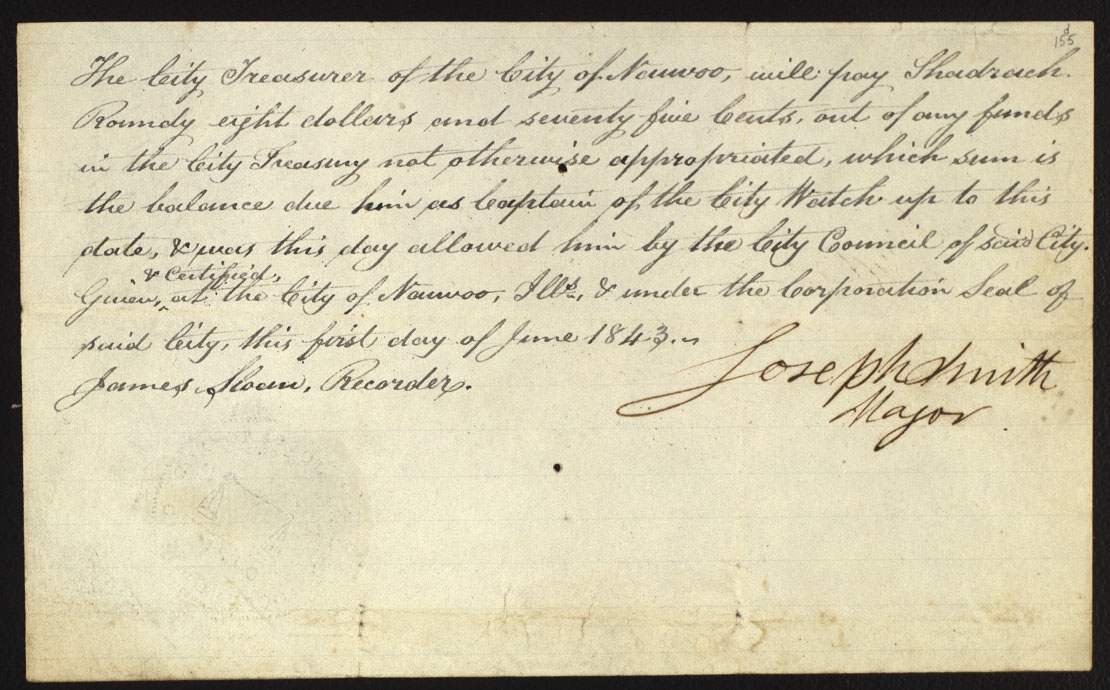 155
The City Treasurer of the City of Nauvoo, will pay Shadrach
Roundy eight dollars and seventy five Cents, out of any funds
in the City Treasury not otherwise appropriated, which sum is
the balance due him as Captain of the City Watch up to this
date, & was this day allowed him by the City Council of said City.
& Certified,
Given, at the City of Nauvoo, Ills., & under the Corporation Seal of
said City, this first day of June 1843.
James Sloan, Recorder.
Joseph Smith
Mayor